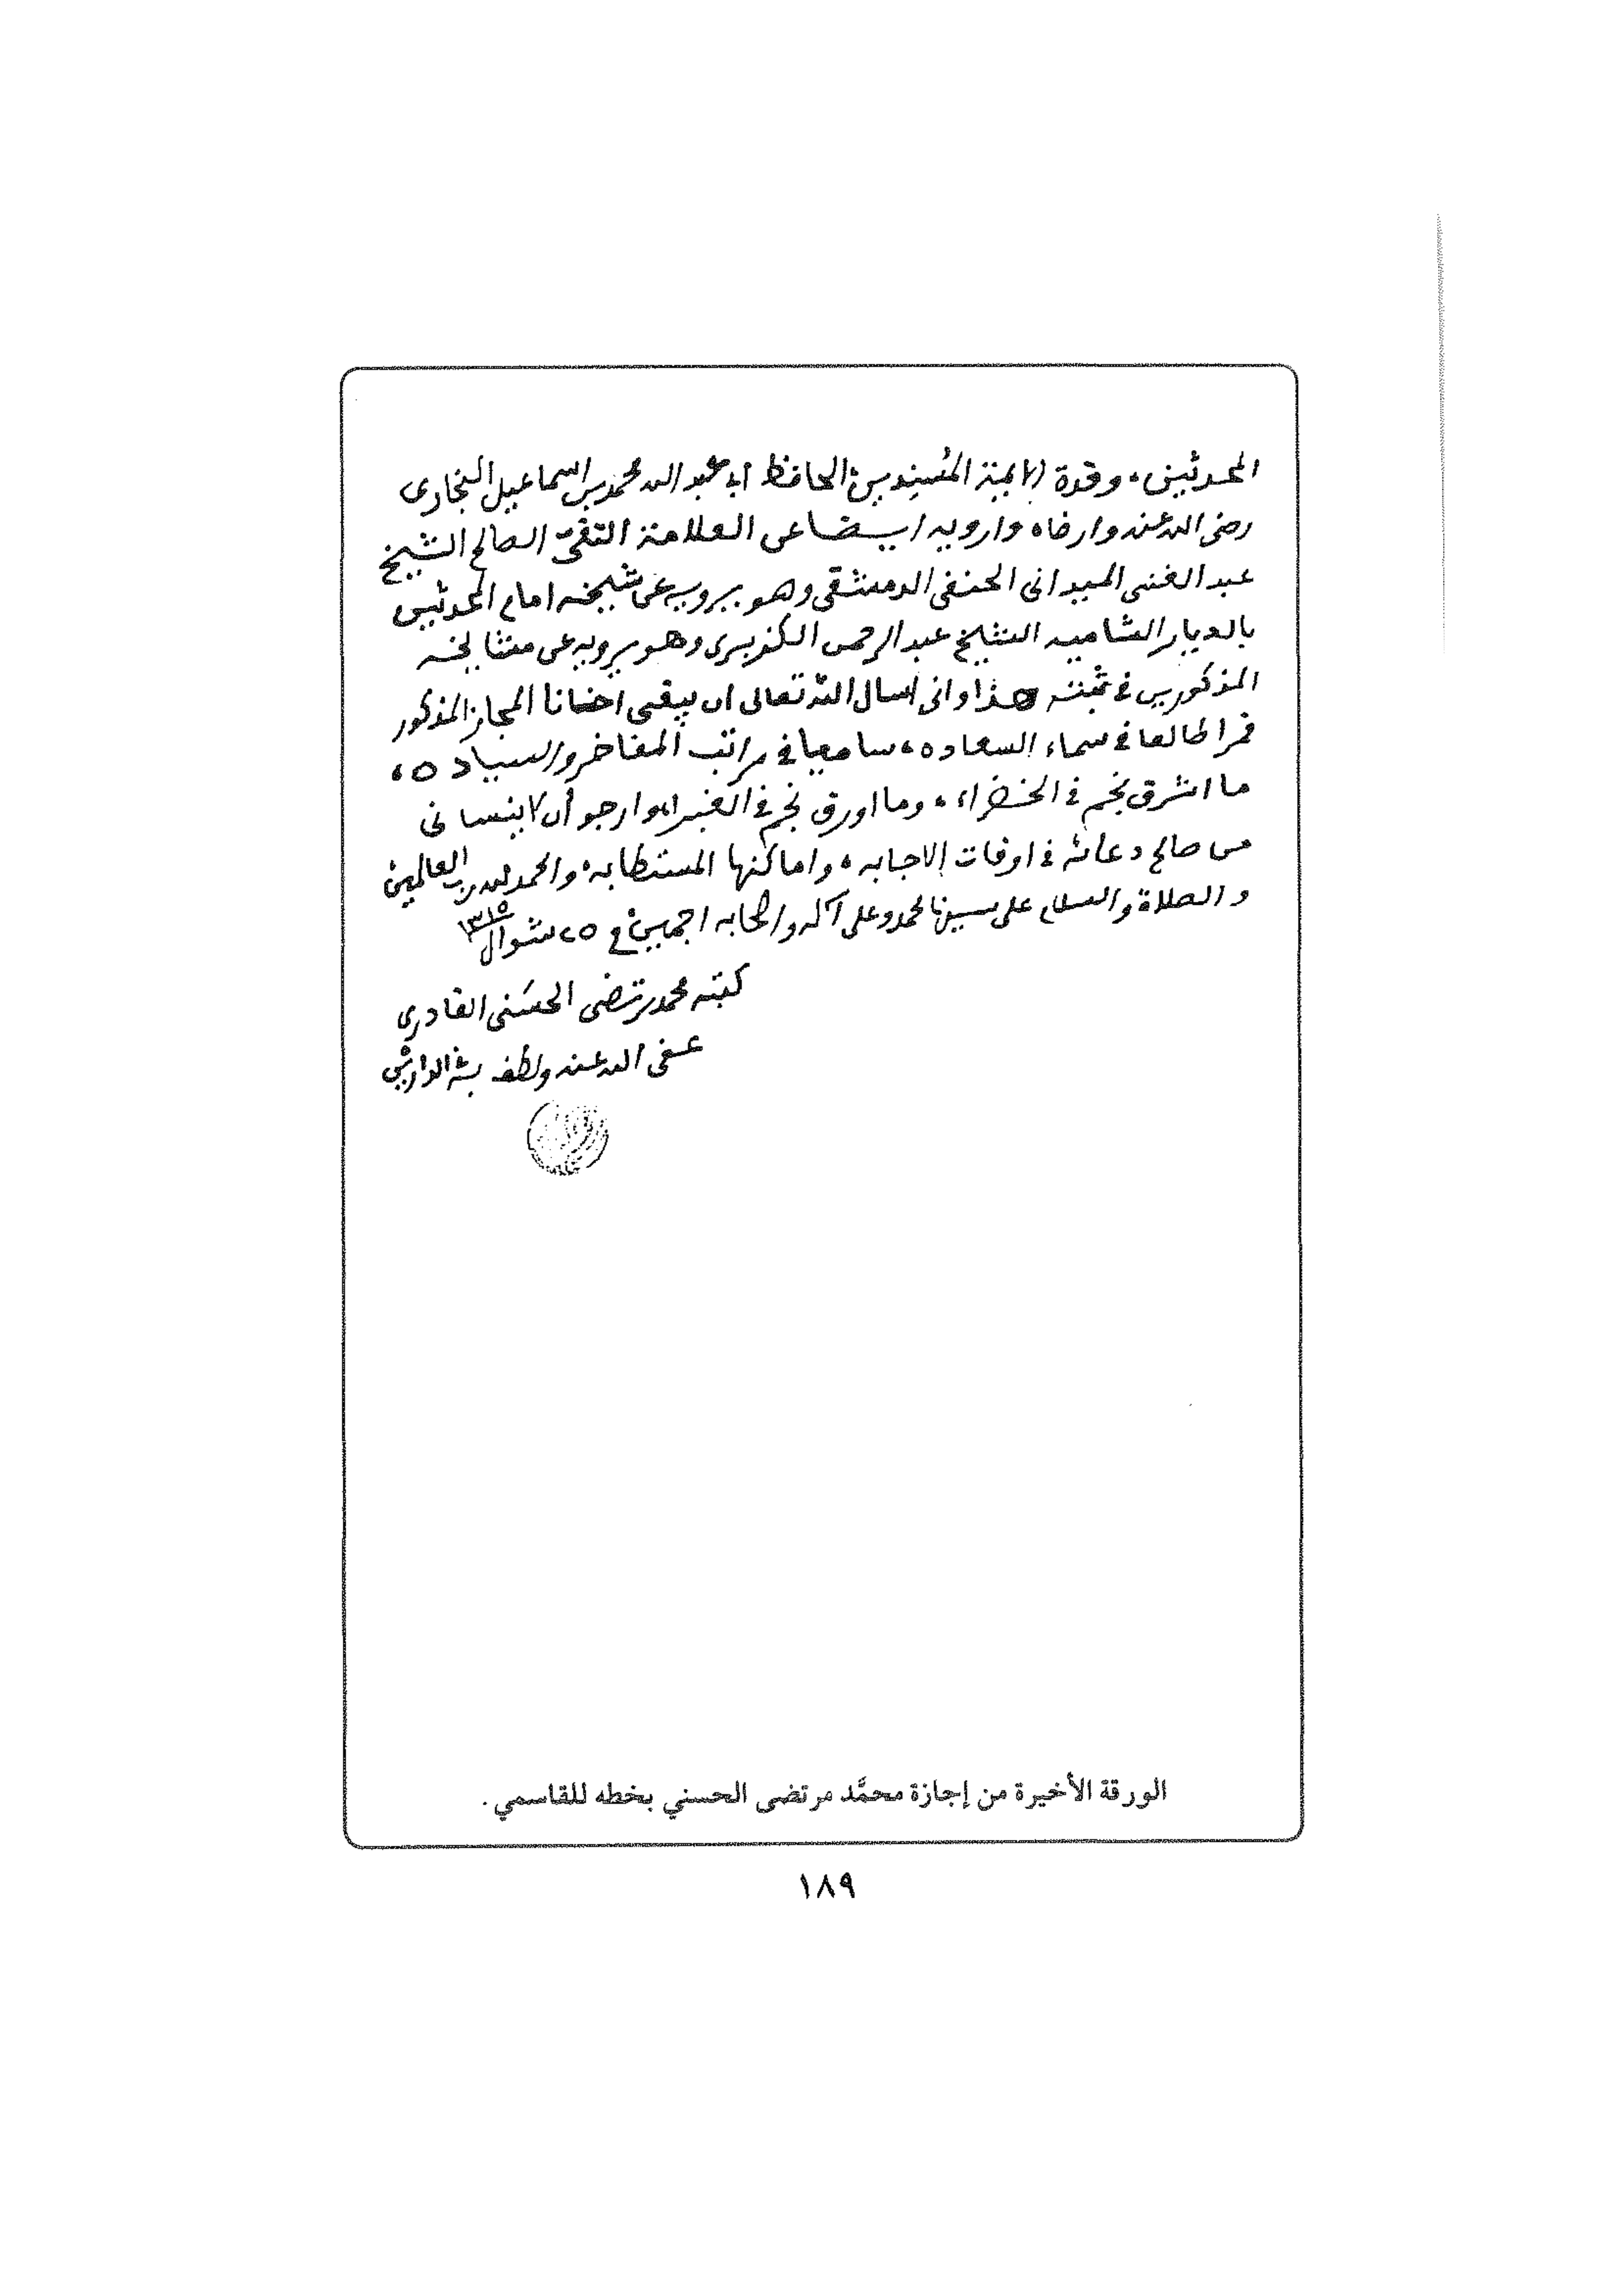 المحدثين، وقدوة الايمة المسندين، الحافظ ابى عبد الله محمد بن اسماعيل البخارى
رضى الله عنه وارضاه وارويه ايضا عن العلامة التقىّ الصالح الشيخ
عبد الغنى الميدانى الحنفى الدمشقى وهو يرويه عن شيخه امام المحدثين
بالديار الشاميه الشيخ عبد الرحمن الكزبرى وهو يرويه عن مشايخه
المذكورين فى ثبته هذا وانى اسال الله تعالى ان يبقى اخانا المجاز المذكور
قمرا طالعا فى سماء السعاده، ساميا فى مراتب المفاخر والسياده،
ما اشرق نجم فى الخضراء، وما اورق نجم فى الغبراء وارجو أن لا ينسانى
من صالح دعائه فى اوقات الاجابه، واماكنها المستطابه، والحمد لله رب العالمين
والصلاة والسلام على سيدنا محمد وعلى آله واصحابه اجمعين فى ٢٥ شوال ١٣١٥
كتبه محمد مرتضى الحسَنى القادرى
عفى الله عنه ولطف به فى الدارين
الورقة الأخيرة من إجازة محمَّد مرتضى الحسني بخطه للقاسمي.
١٨٩